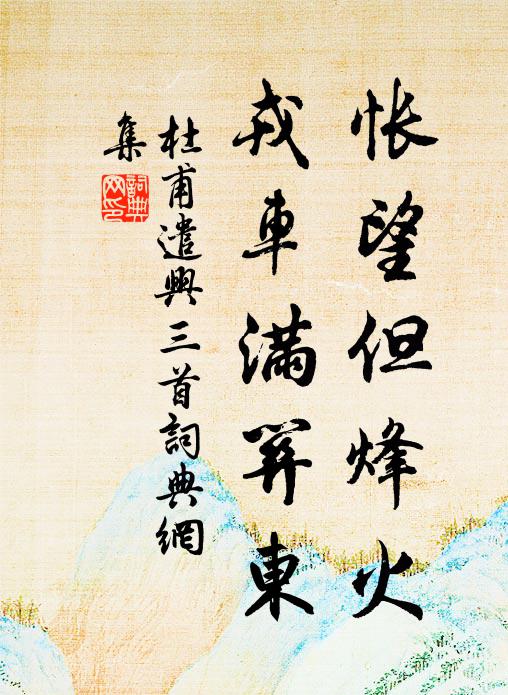 悵望但烽火
戎車滿關東
杜甫遣興三首詞典網
集
詞典
网印